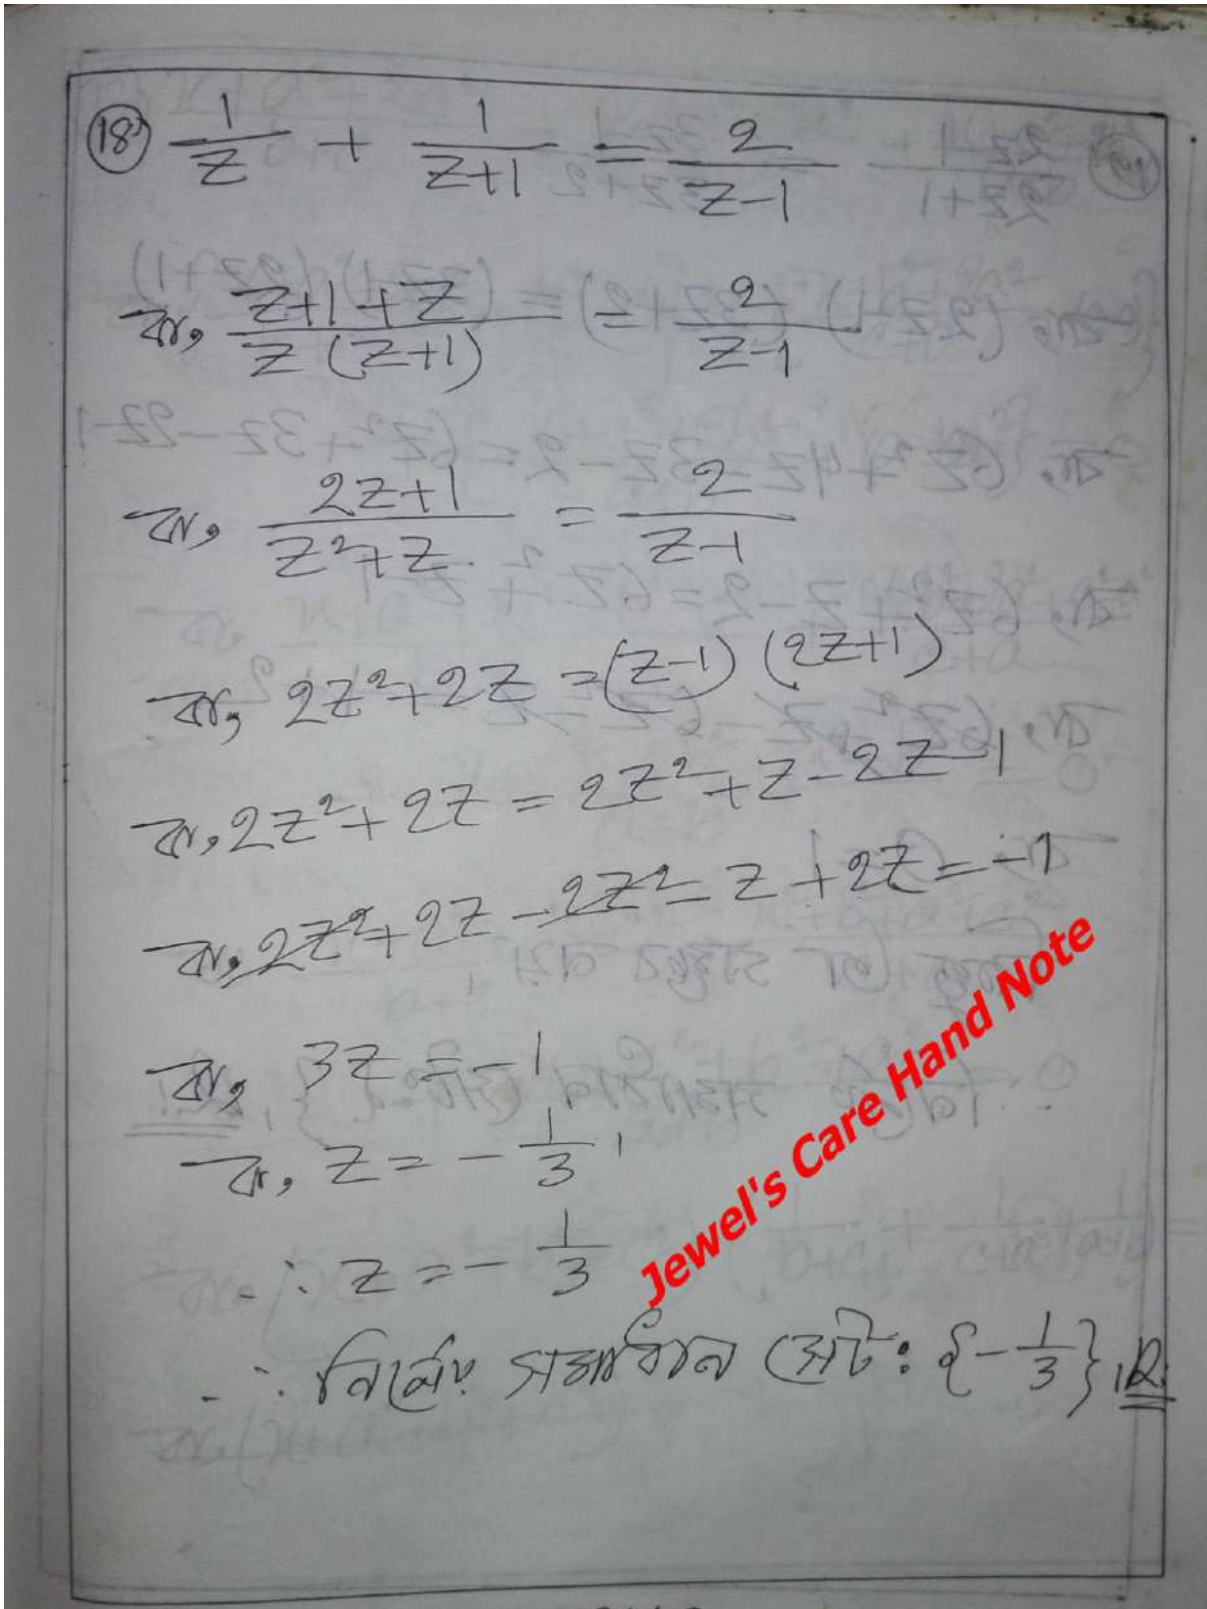 18) 1/z + 1/(z+1) = 2/(z-1)
বা, (z+1+z)/(z(z+1)) = 2/(z-1)
বা, (2z+1)/(z²+z) = 2/(z-1)
বা, 2z²+2z = (z-1) (2z+1)
বা, 2z²+2z = 2z²+z-2z-1
বা, 2z²+2z-2z²-z+2z=-1
বা, 3z = -1
বা, z = -1/3
∴ z = -1/3
∴ নির্ণেয় সমাধান সেট: {-1/3}
Jewel's Care Hand Note